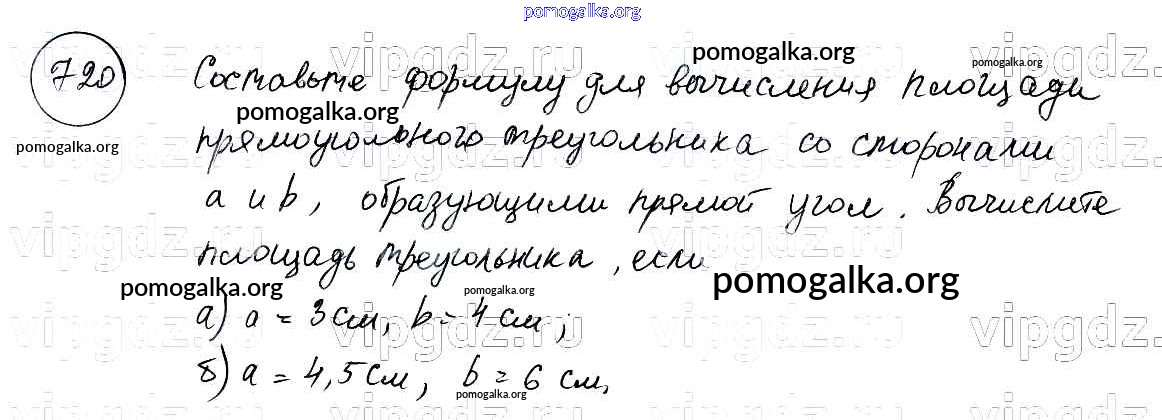 pomogalka.org
720
Составьте формулу для вычисления площади
прямоугольного треугольника со сторонами
a и b, образующими прямой угол. Вычислите
площадь треугольника, если
а) a = 3 см, b = 4 см;
б) a = 4,5 см, b = 6 см.
pomogalka.org
pomogalka.org
pomogalka.org
pomogalka.org
pomogalka.org
pomogalka.org
pomogalka.org
pomogalka.org
vipgdz.ru